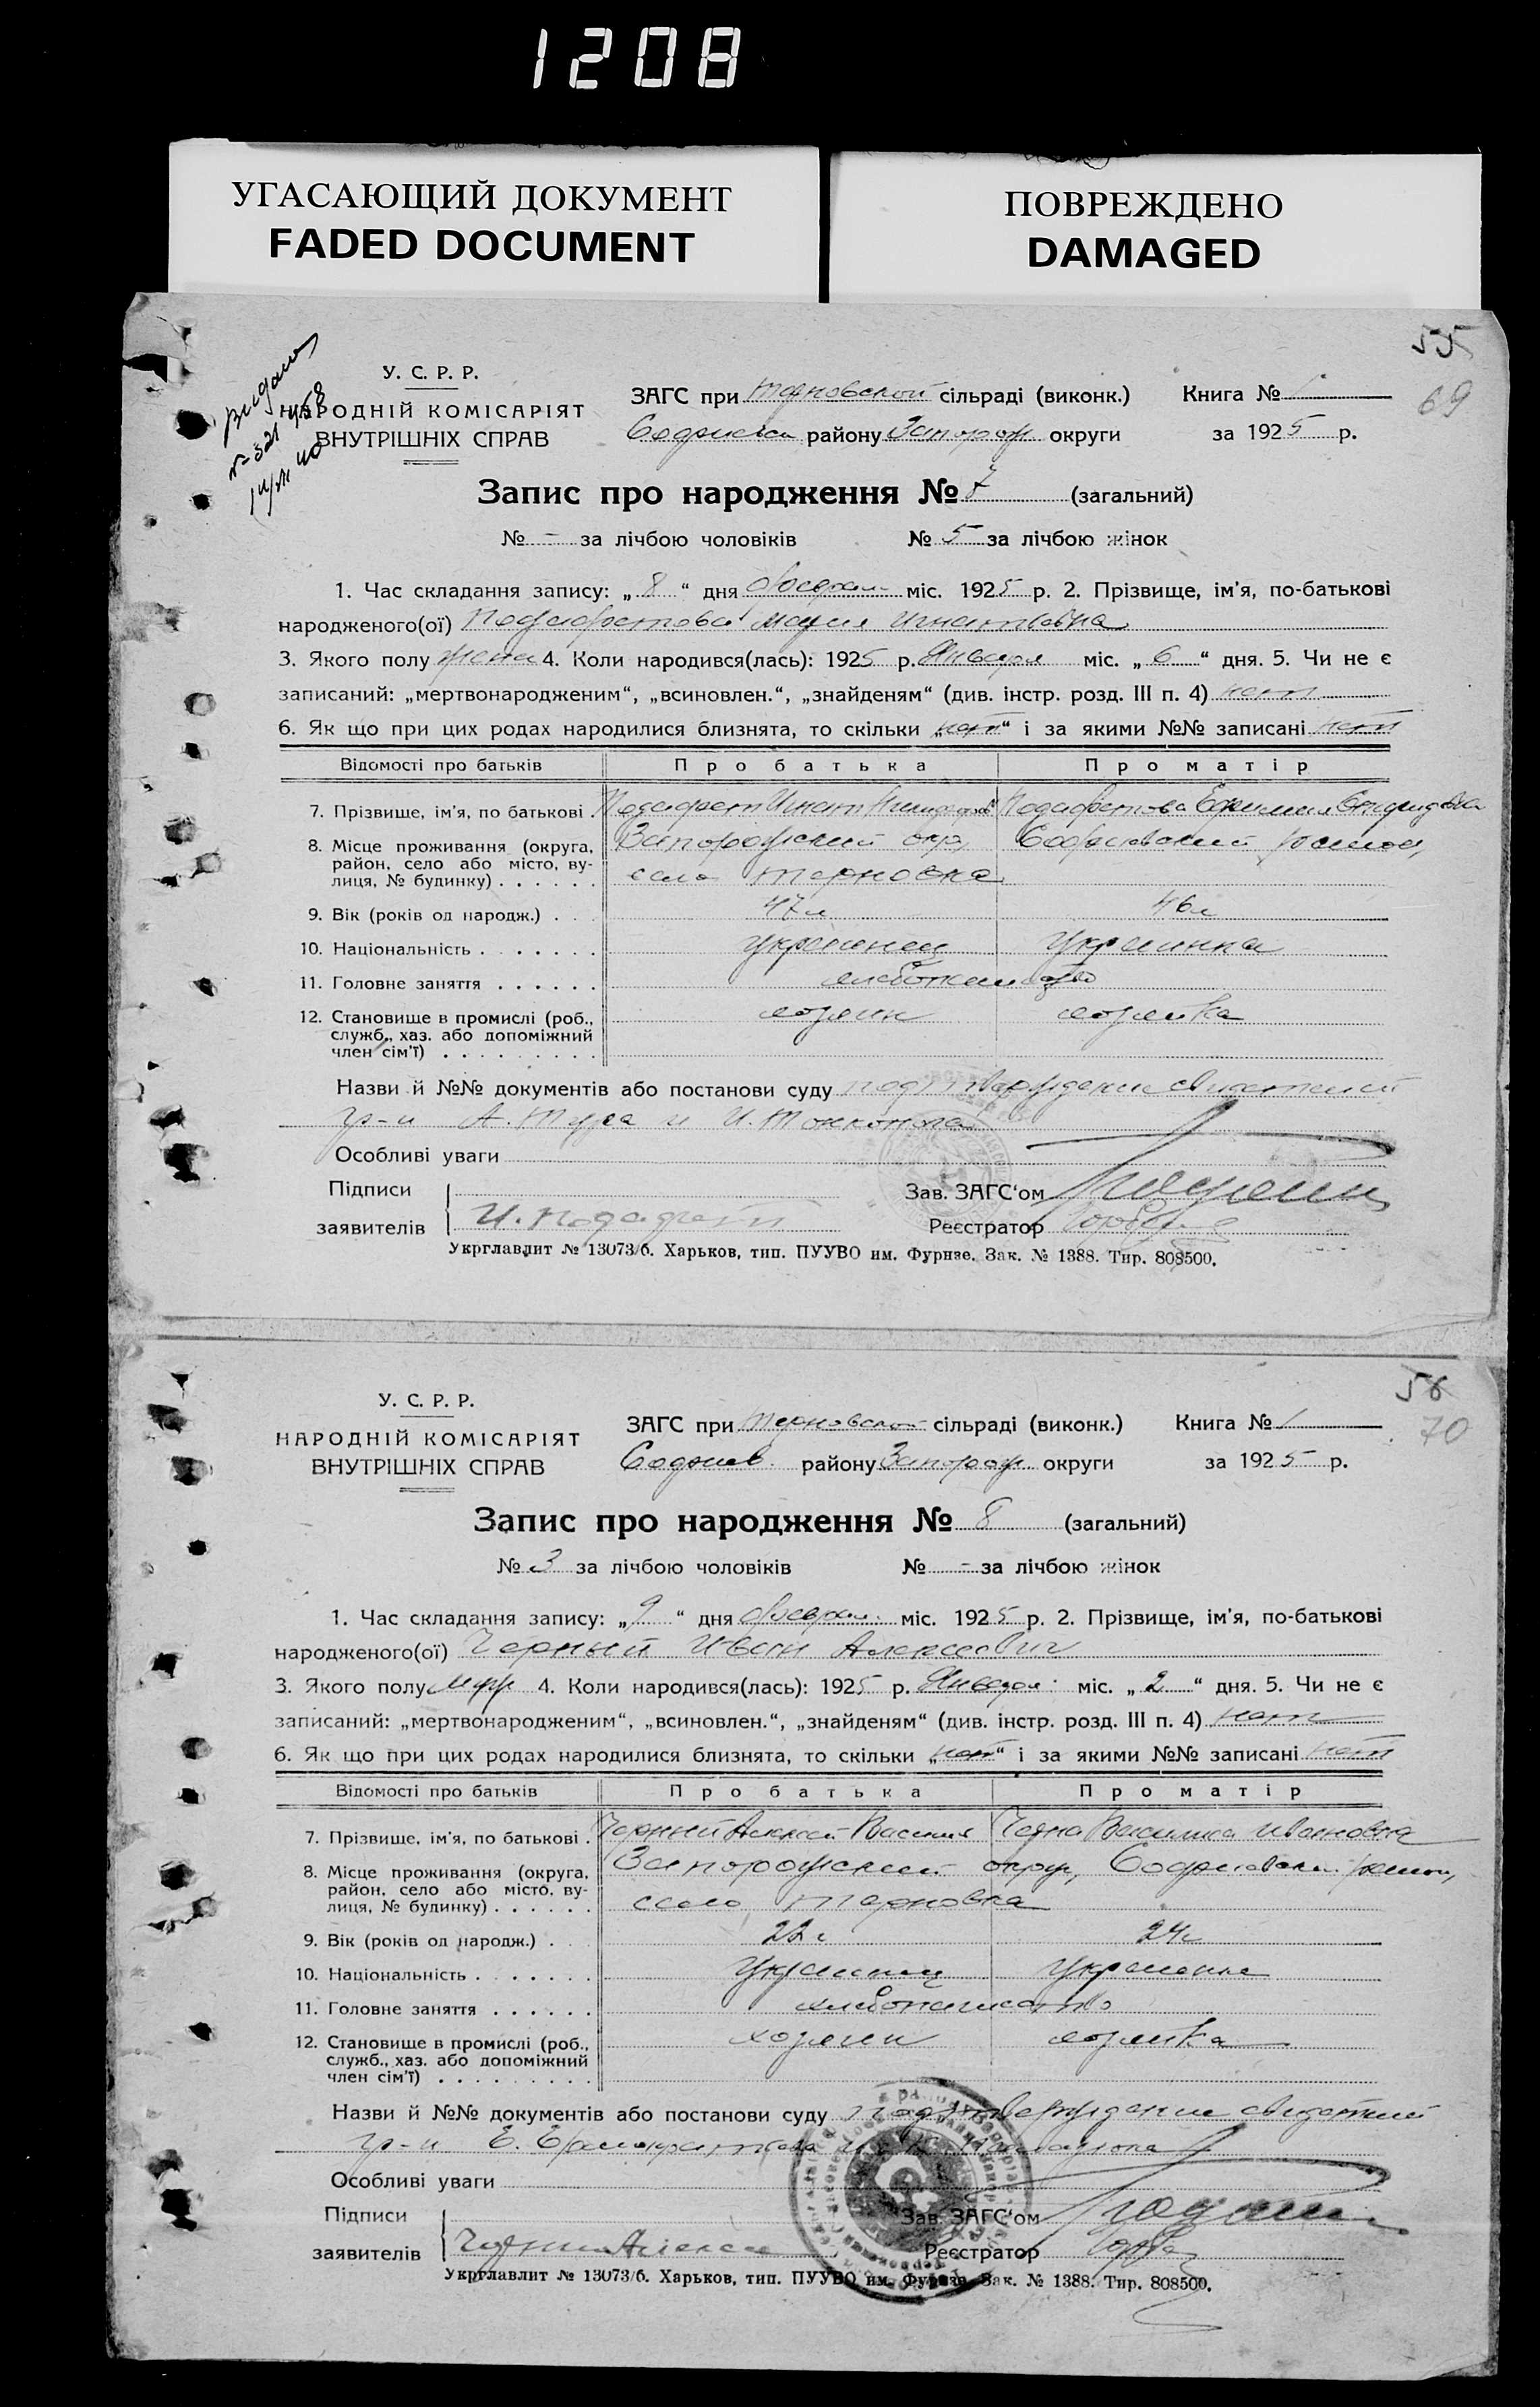 1208
УГАСАЮЩИЙ ДОКУМЕНТ
FADED DOCUMENT
ПОВРЕЖДЕНО
DAMAGED
55
69
У. С. Р. Р.
НАРОДНІЙ КОМІСАРІЯТ
ВНУТРІШНІХ СПРАВ
ЗАГС при Терновской сільраді (виконк.) Книга № 1
району Запорож округи за 1925 р.
Запис про народження № 7 (загальний)
№ - за лічбою чоловіків № 5 за лічбою жінок
1. Час складання запису: „ 8 “ дня феврал міс. 1925 р. 2. Прізвище, ім'я, по-батькові
народженого(ої) Мария Игнатовна
3. Якого полу жена 4. Коли народився(лась): 1925 р. Января міс. „ 6 “ дня. 5. Чи не є
записаний: „мертвонародженим“, „всиновлен.“, „знайденям“ (див. інстр. розд. III п. 4) нет
6. Як що при цих родах народилися близнята, то скільки „нет“ і за якими №№ записані нет
Відомості про батьків Про батька Про матір
7. Прізвише, ім'я, по батькові . Игнат
8. Місце проживання (округа, Запорожский окр, Софиевский район,
район, село або місто, ву-
лиця, № будинку) . . . . . . село Терновка
9. Вік (років од народж.) . . . 47 л 46 л
10. Національність . . . . . . . украинец украинка
11. Головне заняття . . . . . . хлебопашество
12. Становише в промислі (роб., хозяин хозяйка
служб., хаз. або допоміжний
член сім'ї) . . . . . . . . .
Назви й №№ документів або постанови суду подтверждение свидетелей
гр-н А. и И.
Особливі уваги
Підписи
заявителів И.
Зав. ЗАГС‘ом
Реєстратор
Укрглавлит № 13073/б. Харьков, тип. ПУУВО им. Фурнзе. Зак. № 1388. Тир. 808500.
70
У. С. Р. Р.
НАРОДНІЙ КОМІСАРІЯТ
ВНУТРІШНІХ СПРАВ
ЗАГС при Терновской сільраді (виконк.) Книга № 1
Софиев. району Запорож округи за 1925 р.
Запис про народження № 8 (загальний)
№ 3 за лічбою чоловіків № - за лічбою жінок
1. Час складання запису: „ 9 “ дня феврал. міс. 1925 р. 2. Прізвище, ім'я, по-батькові
народженого(ої) Черный Иван Алексеевич
3. Якого полу муж 4. Коли народився(лась): 1925 р. Января міс. „ 2 “ дня. 5. Чи не є
записаний: „мертвонародженим“, „всиновлен.“, „знайденям“ (див. інстр. розд. III п. 4) нет
6. Як що при цих родах народилися близнята, то скільки „нет“ і за якими №№ записані нет
Відомості про батьків Про батька Про матір
7. Прізвише, ім'я, по батькові . Черный Алексей Василия Василиса Ивановна
8. Місце проживання (округа, Запорожский округ, Софиевский район,
район, село або місто, ву-
лиця, № будинку) . . . . . . село Терновка
9. Вік (років од народж.) . . . 22 г 24 г
10. Національність . . . . . . . украинец украинка
11. Головне заняття . . . . . . хлебопашество
12. Становише в промислі (роб., хозяин хозяйка
служб., хаз. або допоміжний
член сім'ї) . . . . . . . . .
Назви й №№ документів або постанови суду подтверждение свидетелей
гр-н Е.
Особливі уваги
Підписи
заявителів
Зав. ЗАГС‘ом
Реєстратор
Укрглавлит № 13073/б. Харьков, тип. ПУУВО им. Фурнзе. Зак. № 1388. Тир. 808500.